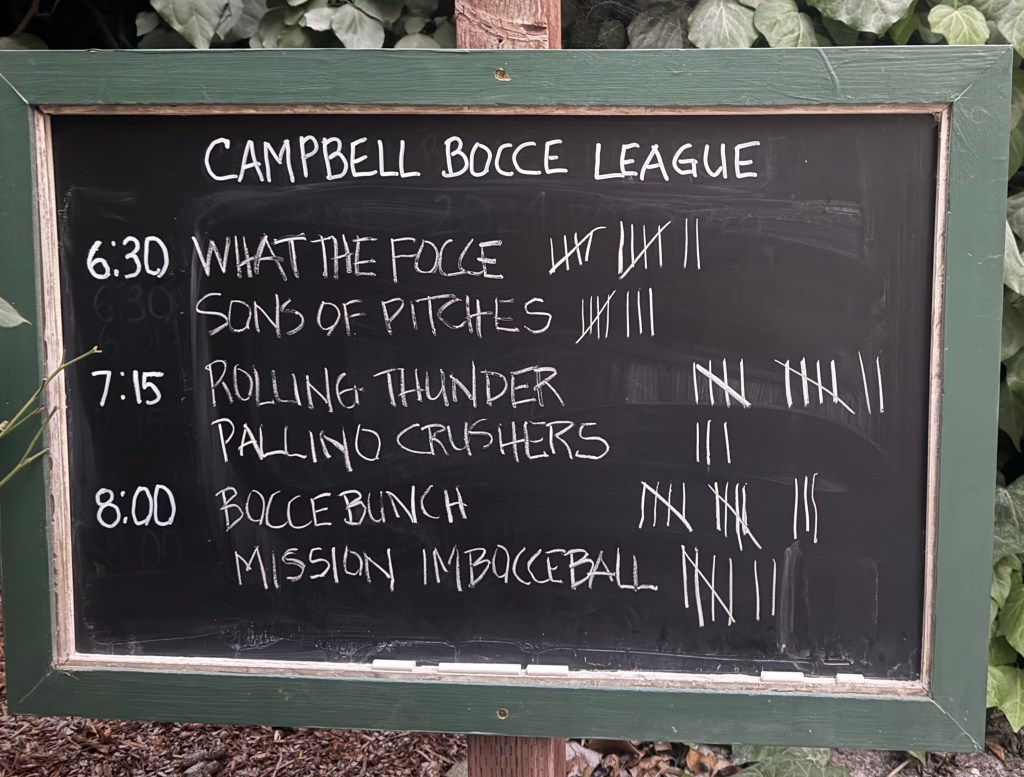 CAMPBELL BOCCE LEAGUE
6:30 WHAT THE FOCCE 𝍸 𝍸 ||
SONS OF PITCHES 𝍸 |||
7:15 ROLLING THUNDER 𝍸 𝍸 ||
PALLINO CRUSHERS |||
8:00 BOCCE BUNCH 𝍸 𝍸 |||
MISSION IMBOCCEBALL 𝍸 ||